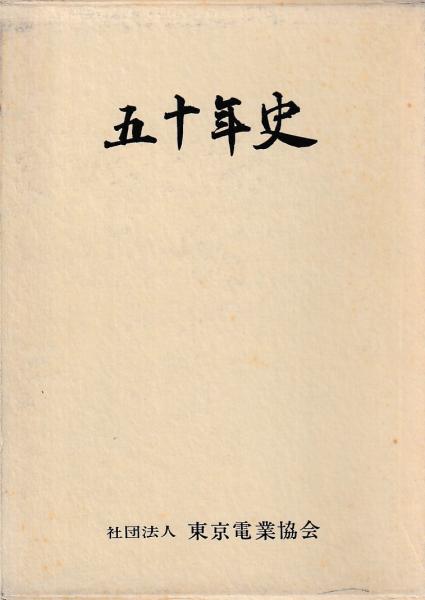 五十年史
社団法人 東京電業協会